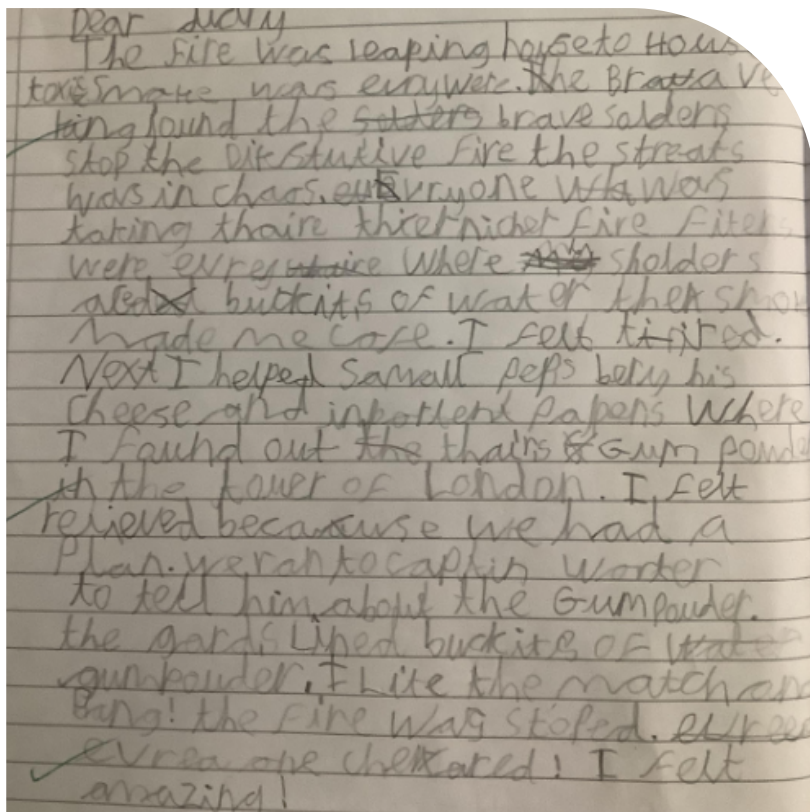 Dear diary
The fire was leaping house to Hous
smoke was evrywere. The Brave
king found the brave solders
stop the Distructive fire the streats
was in chaos. evryone was
taking thaire fire fiters
were evrey where sholders
buckits of water the smo
made me cofe. I felt tired.
Next I helped Samall peps bery his
cheese and inportent papers Where
I faund out thairs Gum powd
in the tower of London. I felt
relieved because we had a
Plan. we ran to captin worter
to tell him about the Gumpouder.
the gards Lined buckits of
gumpouder. I Lite the match an
Bang! the fire was stoped.
evrea one cheared! I felt
amazing!